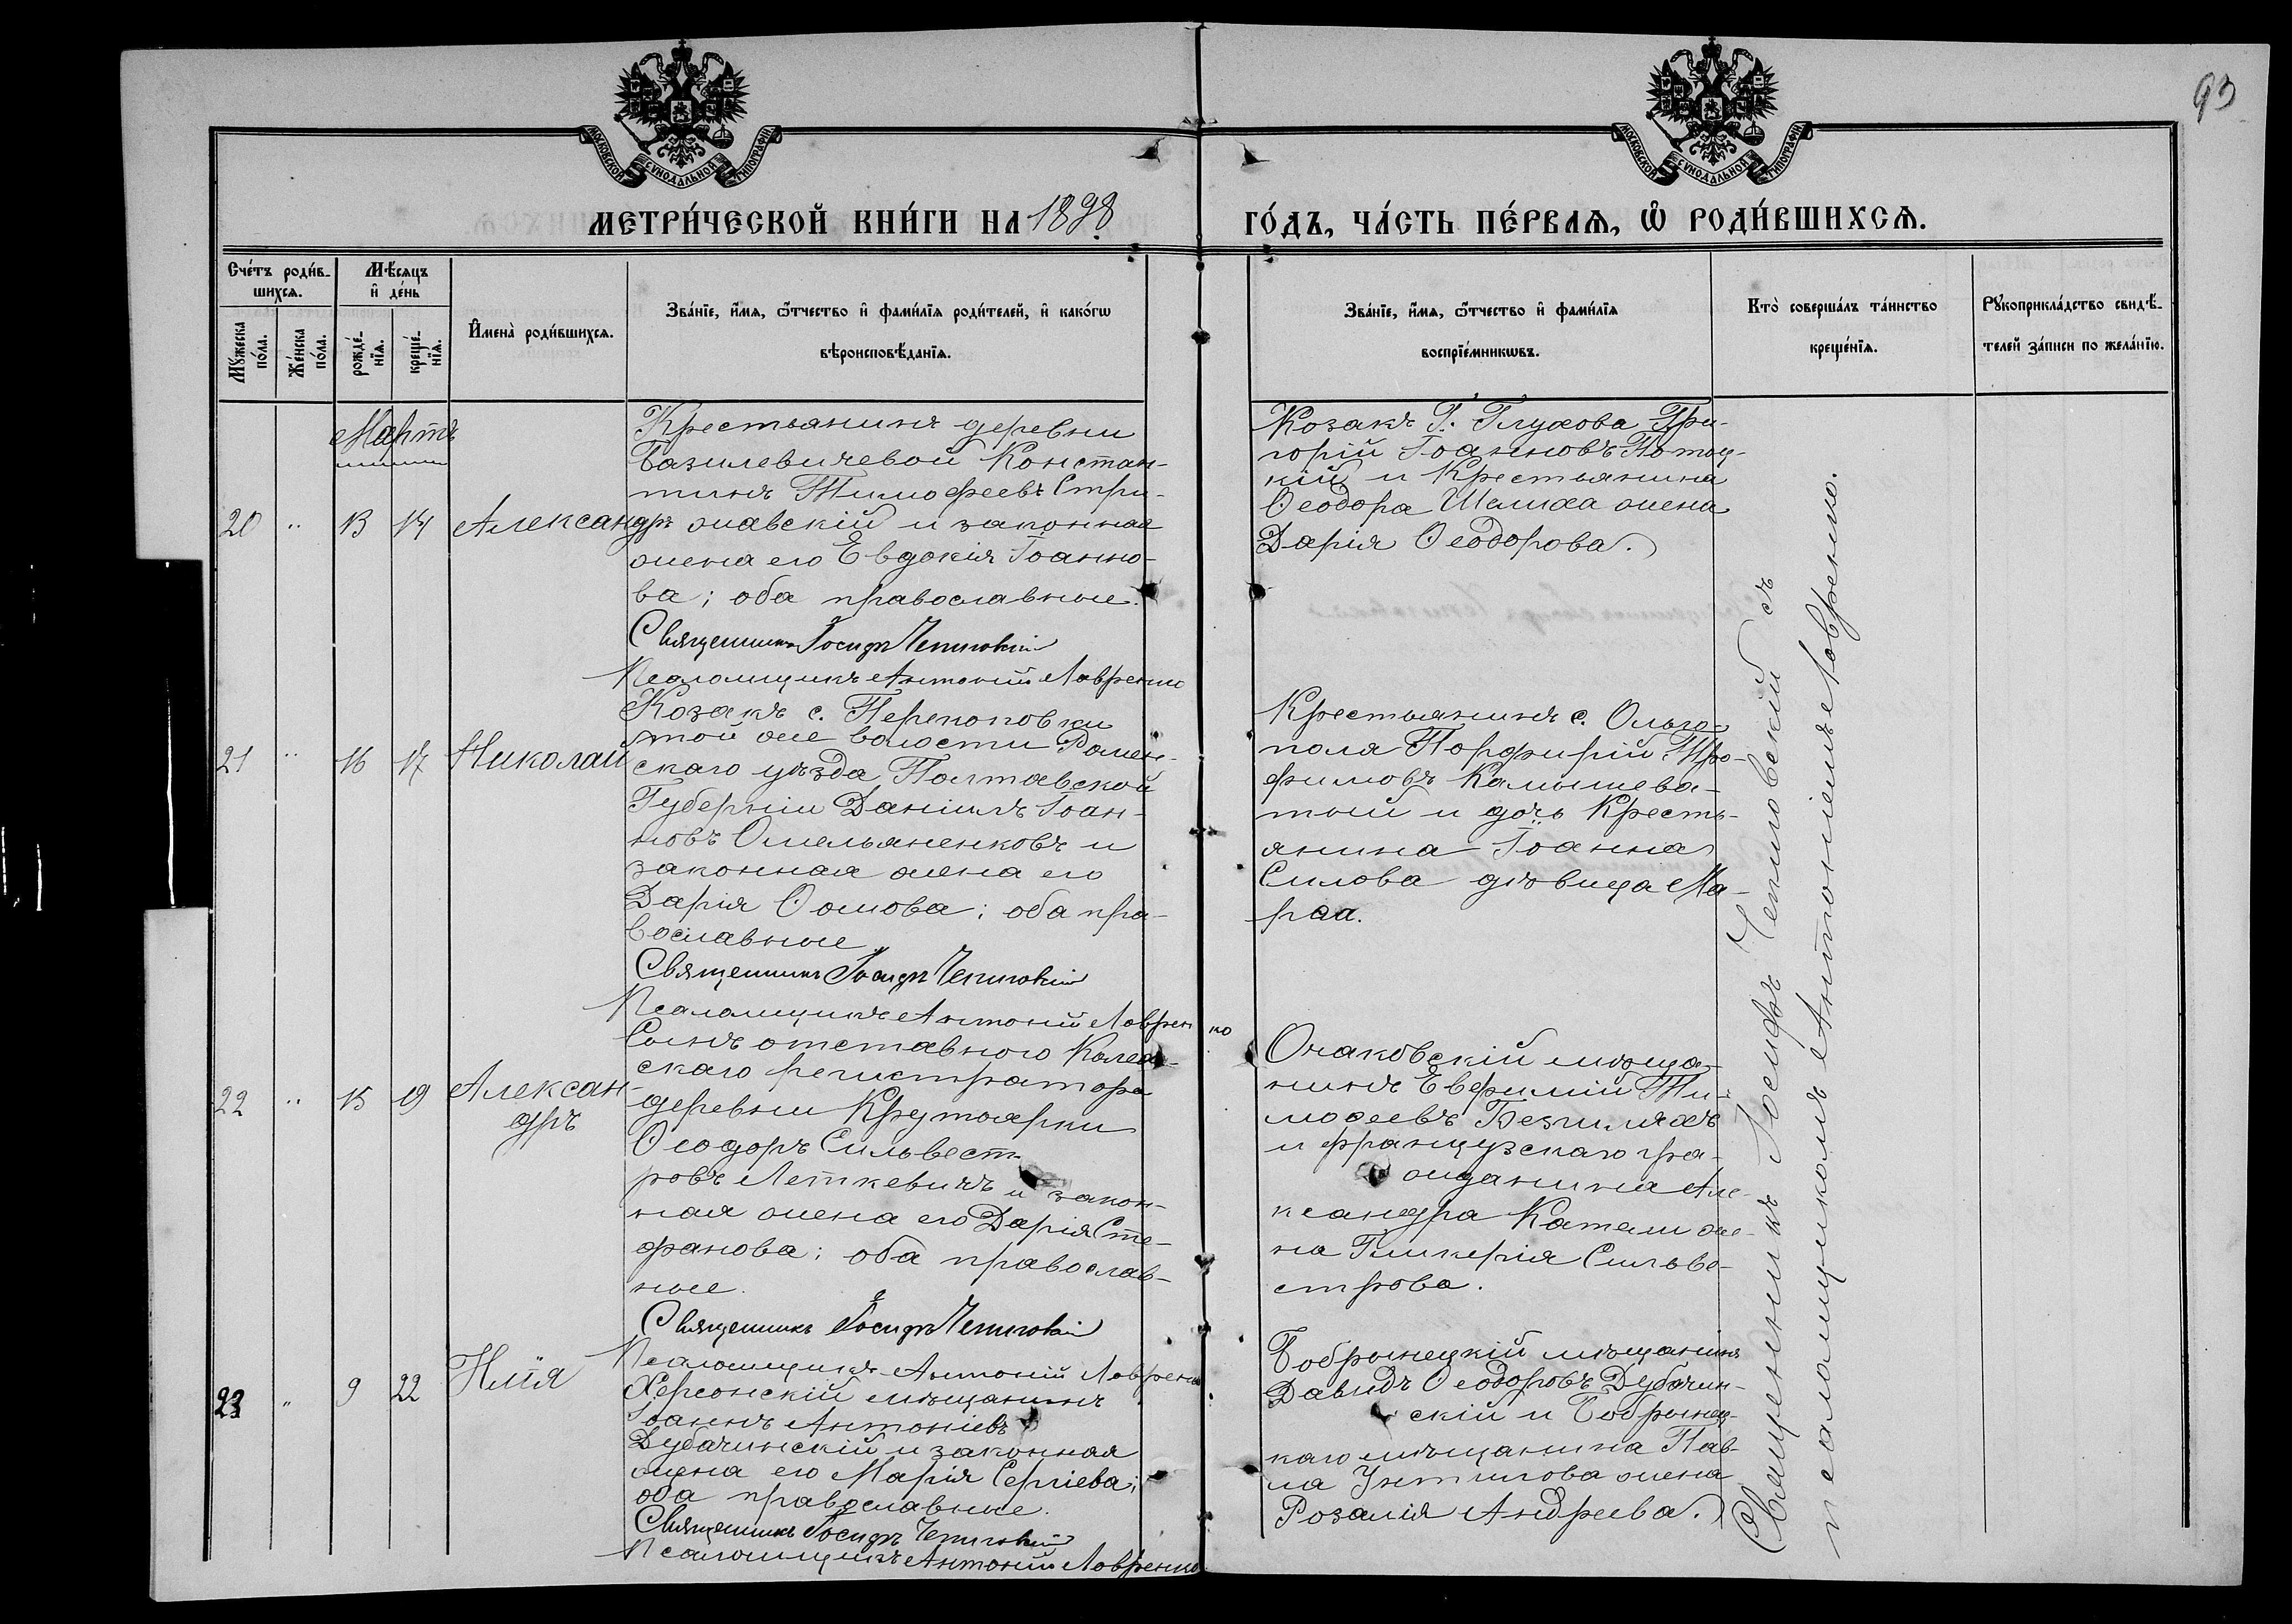 93
МОСКОВСКОЙ СѴНОДАЛЬНОЙ ТИПОГРАФІИ
МОСКОВСКОЙ СѴНОДАЛЬНОЙ ТИПОГРАФІИ
МЕТРИ́ЧЕСКОЙ КНИ́ГИ НА 1898 ГО́ДЪ, ЧА́СТЬ ПЕ́РВАЯ, Ѡ҆ РОДИ́ВШИХСѦ.
Сче́тъ роди́в-
шихсѧ.
Мꙋжеска по́ла.
Же́нска по́ла.
Мѣ́сѧцъ
и҆ де́нь
рожде́-
нїѧ.
креще́-
нїѧ.
И҆мена̀ роди́вшихсѧ.
Зва́нїе, и҆́мѧ, ѻ҆́тчество и҆ фами́лїѧ роди́телей, и҆ како́гѡ
вѣроисповѣ́данїѧ.
Зва́нїе, и҆́мѧ, ѻ҆́тчество и҆ фами́лїѧ
воспрїе́мникѡвъ.
Кто̀ соверша́лъ та́инство
креще́нїѧ.
Рꙋкоприкла́дство свидѣ́-
телей за́писи по жела́нїю.
Мартъ
20 " 13 14 Александръ
Крестьянинъ деревни
Базилевичевой Констан-
тинъ Тимофеевъ Стри-
жавскій и законная
жена его Евдокія Іоанно-
ва; оба православные.
Священникъ Іосифъ Чепиговскій
Псаломщикъ Антоній Лавренко
Козакъ Г. Глухова Гри-
горій Іоанновъ Потоц-
кій и Крестьянина
Ѳеодора Шелиха жена
Дарія Ѳеодорова.
21 " 16 17 Николай
Козакъ с. Перекоповки
той же волости Ромен-
скаго уѣзда Полтавской
Губерніи Даніилъ Іоан-
новъ Омельяненковъ и
законная жена его
Дарія Ѳомова; оба пра-
вославные.
Священникъ Іосифъ Чепиговскій
Псаломщикъ Антоній Лавренко
Крестьянинъ с. Ольго-
поля Порфирій Тро-
фимовъ Камышева-
тый и дочь Кресть-
янина Іоанна
Силова дѣвица Ма-
рѳа.
22 " 15 19 Алексан-
дръ
Сынъ отставного Колеж-
скаго регистратора
деревни Крутоярки
Ѳеодоръ Сильвест-
ровъ Леткевичъ и закон-
ная жена его Дарія Сте-
фанова; оба православ-
ные.
Священникъ Іосифъ Чепиговскій
Псаломщикъ Антоній Лавренко
Очаковскій мѣща-
нинъ Евфимій Ти-
моѳеевъ
и французскаго гра-
жданина Але-
ксандра Катали же-
на Гликерія Сильве-
строва.
23 " 9 22 Илія
Херсонскій мѣщанинъ
Іоаннъ Антоніевъ
Дубачинскій и законная
жена его Марія Сергіева;
оба православные.
Священникъ Іосифъ Чепиговскій
Псаломщикъ Антоній Лавренко
Бобринецкій мѣщанинъ
Давидъ Ѳеодоровъ Дубачин-
скій и Бобринец-
каго мѣщанина Пав-
ла жена
Розалія Андреева.
Священникъ Іосифъ Чепиговскій съ
псаломщикомъ Антоніемъ Лавренко.